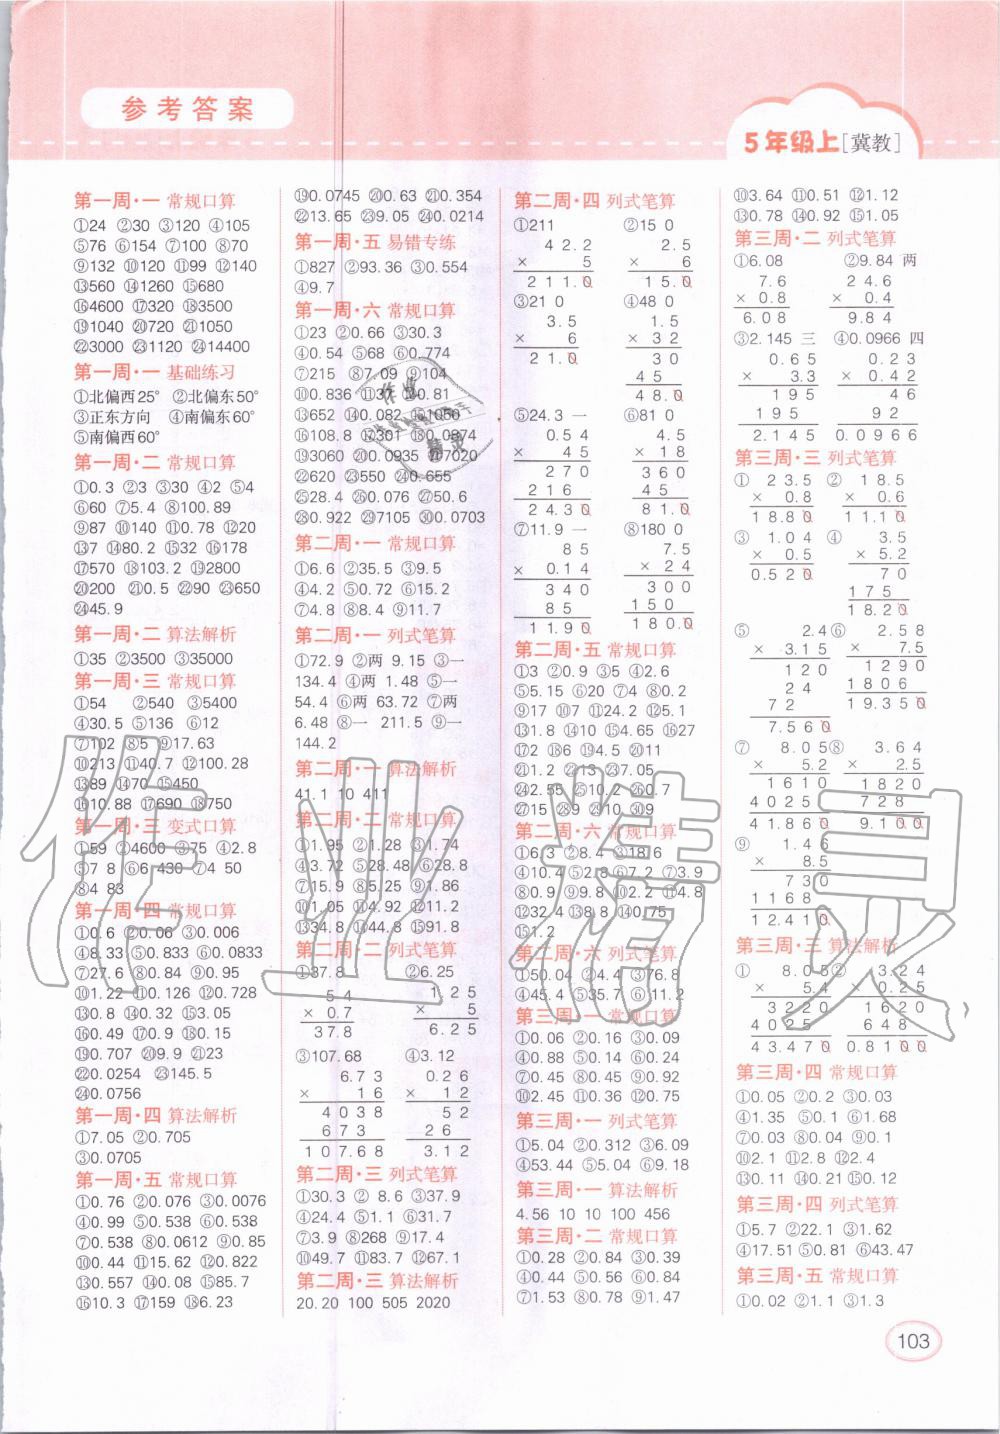 参考答案
5年级上[冀教]
第一周·一 常规口算
①24 ②30 ③120 ④105
⑤76 ⑥154 ⑦100 ⑧70
⑨132 ⑩120 ⑪99 ⑫140
⑬560 ⑭1260 ⑮680
⑯4600 ⑰320 ⑱3500
⑲1040 ⑳720 ㉑1050
㉒3000 ㉓1120 ㉔14400
第一周·一 基础练习
①北偏西25° ②北偏东50°
③正东方向 ④南偏东60°
⑤南偏西60°
第一周·二 常规口算
①0.3 ②3 ③30 ④2 ⑤4
⑥60 ⑦5.4 ⑧100.89
⑨87 ⑩140 ⑪0.78 ⑫20
⑬7 ⑭80.2 ⑮32 ⑯178
⑰570 ⑱103.2 ⑲2800
⑳200 ㉑0.5 ㉒90 ㉓650
㉔45.9
第一周·二 算法解析
①35 ②3500 ③35000
第一周·三 常规口算
①54 ②540 ③5400
④30.5 ⑤136 ⑥12
⑦102 ⑧5 ⑨17.63
⑩213 ⑪40.7 ⑫100.28
⑬89 ⑭70 ⑮450
⑯10.88 ⑰690 ⑱750
第一周·三 变式口算
①59 ②4600 ③75 ④2.8
⑤7 8 ⑥6 430 ⑦4 50
⑧4 83
第一周·四 常规口算
①0.6 ②0.06 ③0.006
④8.33 ⑤0.833 ⑥0.0833
⑦27.6 ⑧0.84 ⑨0.95
⑩1.22 ⑪0.126 ⑫0.728
⑬0.8 ⑭0.32 ⑮3.05
⑯0.49 ⑰0.9 ⑱0.15
⑲0.707 ⑳9.9 ㉑23
㉒0.0254 ㉓145.5
㉔0.0756
第一周·四 算法解析
①7.05 ②0.705
③0.0705
第一周·五 常规口算
①0.76 ②0.076 ③0.0076
④0.99 ⑤0.538 ⑥0.538
⑦0.538 ⑧0.0612 ⑨0.85
⑩0.44 ⑪15.62 ⑫0.822
⑬0.557 ⑭0.08 ⑮85.7
⑯10.3 ⑰159 ⑱6.23
⑲0.0745 ⑳0.63 ㉑0.354
㉒13.65 ㉓9.05 ㉔0.0214
第一周·五 易错专练
①827 ②93.36 ③0.554
④9.7
第一周·六 常规口算
①23 ②0.66 ③30.3
④0.54 ⑤68 ⑥0.774
⑦215 ⑧7.09 ⑨104
⑩0.836 ⑪37 ⑫0.81
⑬652 ⑭0.082 ⑮1050
⑯108.8 ⑰301 ⑱0.0374
⑲3060 ⑳0.0935 ㉑7020
㉒620 ㉓550 ㉔0.655
㉕28.4 ㉖0.076 ㉗50.6
㉘0.922 ㉙7105 ㉚0.0703
第二周·一 常规口算
①6.6 ②35.5 ③9.5
④4.2 ⑤0.72 ⑥15.2
⑦4.8 ⑧8.4 ⑨11.7
第二周·一 列式笔算
①72.9 ②两 9.15 ③一
134.4 ④两 1.48 ⑤一
54.4 ⑥两 63.72 ⑦两
6.48 ⑧一 211.5 ⑨一
144.2
第二周·一 算法解析
41.1 10 411
第二周·二 常规口算
①1.95 ②1.28 ③1.74
④3.72 ⑤28.48 ⑥28.8
⑦15.9 ⑧5.25 ⑨1.86
⑩1.05 ⑪4.92 ⑫11.2
⑬34.8 ⑭44.8 ⑮91.8
第二周·二 列式笔算
①37.8 ②6.25
5 4 1.2 5
× 0.7 × 5
3 7.8 6.2 5
③107.68 ④3.12
6.7 3 0.2 6
× 1 6 × 1 2
4 0 3 8 5 2
6 7 3 2 6
1 0 7.6 8 3.1 2
第二周·三 列式笔算
①30.3 ② 8.6 ③37.9
④24.4 ⑤1.1 ⑥31.7
⑦3.9 ⑧268 ⑨17.4
⑩49.7 ⑪83.7 ⑫67.1
第二周·三 算法解析
20.20 100 505 2020
第二周·四 列式笔算
①211 ②15 0
4 2.2 2.5
× 5 × 6
2 1 1.0 1 5.0
③21 0 ④48 0
3.5 1.5
× 6 × 3 2
2 1.0 3 0
4 5
4 8.0
⑤24.3 一 ⑥81 0
0.5 4 4.5
× 4 5 × 1 8
2 7 0 3 6 0
2 1 6 4 5
2 4.3 0 8 1.0
⑦11.9 一 ⑧180 0
8 5 7.5
× 0.1 4 × 2 4
3 4 0 3 0 0
8 5 1 5 0
1 1.9 0 1 8 0.0
第二周·五 常规口算
①3 ②0.9 ③5 ④2.6
⑤5.15 ⑥20 ⑦4 ⑧0.2
⑨17 ⑩7 ⑪24.2 ⑫5.1
⑬1.8 ⑭10 ⑮4.65 ⑯27
⑰2 ⑱6 ⑲4.5 ⑳11
㉑1.2 ㉒13 ㉓7.05
㉔2.55 ㉕10.2 ㉖0.7
㉗15 ㉘9 ㉙10 ㉚9
第二周·六 常规口算
①6.3 ②8.4 ③18.6
④10.4 ⑤2.8 ⑥7.2 ⑦3.9
⑧0.9 ⑨9.8 ⑩2.2 ⑪4.8
⑫32.4 ⑬8.8 ⑭0.75
⑮1.2
第二周·六 列式笔算
①50.04 ②4.4 ③76.8
④45.4 ⑤35.7 ⑥11.2
第三周·一 常规口算
①0.06 ②0.16 ③0.09
④0.88 ⑤0.14 ⑥0.24
⑦0.45 ⑧0.45 ⑨0.92
⑩2.45 ⑪0.36 ⑫0.75
第三周·一 列式笔算
①5.04 ②0.312 ③6.09
④53.44 ⑤5.04 ⑥9.18
第三周·一 算法解析
4.56 10 10 100 456
第三周·二 常规口算
①0.28 ②0.84 ③0.39
④0.44 ⑤0.56 ⑥0.84
⑦1.53 ⑧0.78 ⑨1.47
⑩3.64 ⑪0.51 ⑫1.12
⑬0.78 ⑭0.92 ⑮1.05
第三周·二 列式笔算
①6.08 ②9.84 两
7.6 2 4.6
× 0.8 × 0.4
6.0 8 9.8 4
③2.145 三 ④0.0966 四
0.6 5 0.2 3
× 3.3 × 0.4 2
1 9 5 4 6
1 9 5 9 2
2.1 4 5 0.0 9 6 6
第三周·三 列式笔算
① 2 3.5 ② 1 8.5
× 0.8 × 0.6
1 8.8 0 1 1.1 0
③ 1.0 4 ④ 3.5
× 0.5 × 5.2
0.5 2 0 7 0
1 7 5
1 8.2 0
⑤ 2.4 ⑥ 2.5 8
× 3.1 5 × 7.5
1 2 0 1 2 9 0
2 4 1 8 0 6
7 2 1 9.3 5 0
7.5 6 0
⑦ 8.0 5 ⑧ 3.6 4
× 5.2 × 2.5
1 6 1 0 1 8 2 0
4 0 2 5 7 2 8
4 1.8 6 0 9.1 0 0
⑨ 1.4 6
× 8.5
7 3 0
1 1 6 8
1 2.4 1 0
第三周·三 算法解析
① 8.0 5 ② 3.2 4
× 5.4 × 0.2 5
3 2 2 0 1 6 2 0
4 0 2 5 6 4 8
4 3.4 7 0 0.8 1 0 0
第三周·四 常规口算
①0.05 ②0.2 ③0.03
④1.35 ⑤0.1 ⑥1.68
⑦0.03 ⑧0.04 ⑨0.1
⑩2.1 ⑪2.8 ⑫2.4
⑬0.11 ⑭0.21 ⑮0.12
第三周·四 列式笔算
①5.7 ②22.1 ③1.62
④17.51 ⑤0.81 ⑥43.47
第三周·五 常规口算
①0.02 ②1.1 ③1.3
103
作业精灵